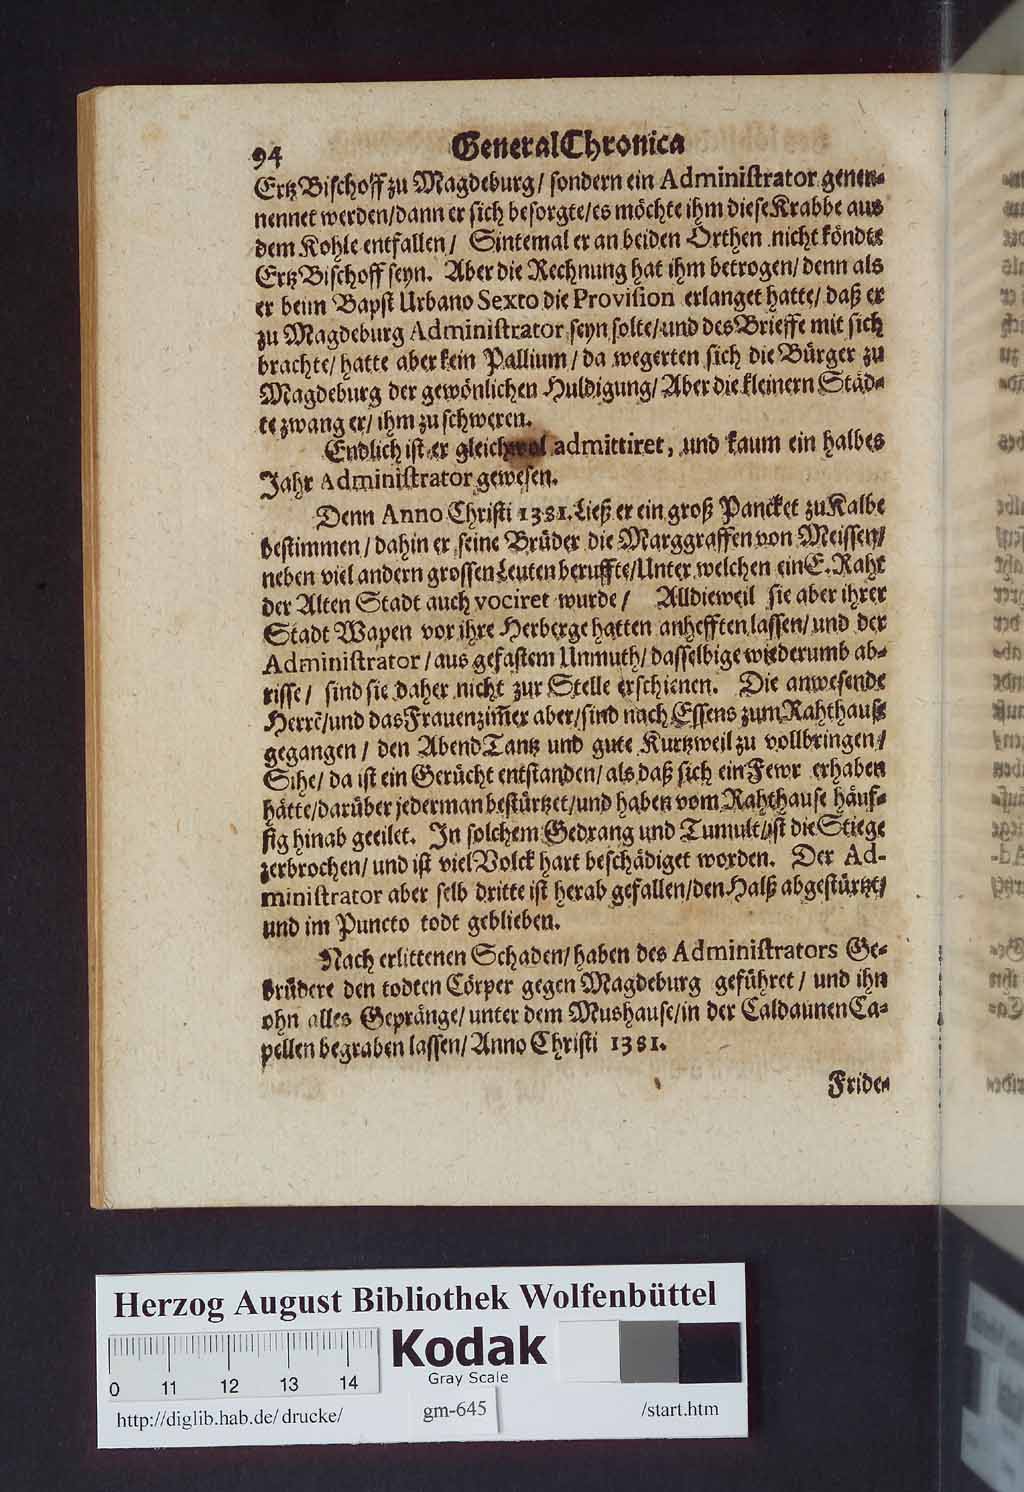 94 GeneralChronica
Ertz Bischoff zu Magdeburg / sondern ein Administrator genen-
nennet werden / dann er sich besorgte / es möchte ihm diese Krabbe aus
dem Kohle entfallen / Sintemal er an beiden Orthen nicht köndte
Ertz Bischoff seyn. Aber die Rechnung hat ihm betrogen / denn als
er beim Bapst Urbano Sexto die Provision erlanget hatte / daß er
zu Magdeburg Administrator seyn solte / und des Brieffe mit sich
brachte / hatte aber kein Pallium / da wegerten sich die Bürger zu
Magdeburg der gewönlichen Huldigung / Aber die kleinern Städ-
te zwang er / ihm zu schweren.
Endlich ist er gleichwol admittiret, und kaum ein halbes
Jahr Administrator gewesen.
Denn Anno Christi 1381. Ließ er ein groß Pancket zu Kalbe
bestimmen / dahin er seine Brüder die Marggraffen von Meissen /
neben viel andern grossen Leuten beruffte / Unter welchen ein E. Raht
der Alten Stadt auch vociret wurde / Alldieweil sie aber ihrer
Stadt Wapen vor ihre Herberge hatten anhefften lassen / und der
Administrator / aus gefastem Unmuth / dasselbige wiederumb ab-
risse / sind sie daher nicht zur Stelle erschienen. Die anwesende
Herrē / und das Frauenzim̄er aber / sind nach Essens zum Rahthause
gegangen / den Abend Tantz und gute Kurtzweil zu vollbringen /
Sihe / da ist ein Gerücht entstanden / als daß sich ein Fewr erhaben
hätte / darüber jederman bestürtzet / und haben vom Rahthause häuf-
fig hinab geeilet. In solchem Gedrang und Tumult / ist die Stiege
zerbrochen / und ist viel Volck hart beschädiget worden. Der Ad-
ministrator aber selb dritte ist herab gefallen / den Halß abgestürtzt /
und im Puncto todt geblieben.
Nach erlittenen Schaden / haben des Administrators Ge-
brüdere den todten Cörper gegen Magdeburg geführet / und ihn
ohn alles Gepränge / unter dem Mushause / in der Caldaunen Ca-
pellen begraben lassen / Anno Christi 1381.
Fride-
Herzog August Bibliothek Wolfenbüttel
0 11 12 13 14
Kodak
Gray Scale
http://diglib.hab.de/drucke/ gm-645 /start.htm